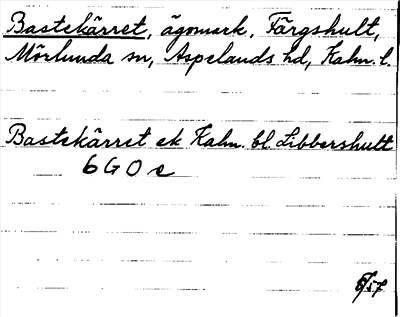 Bastekärret, ägomark, Färgshult,
Mörlunda sn, Aspelands hd, Kalm. l.
Bastekärret ek Kalm. bl. Libbershult
6 G O e